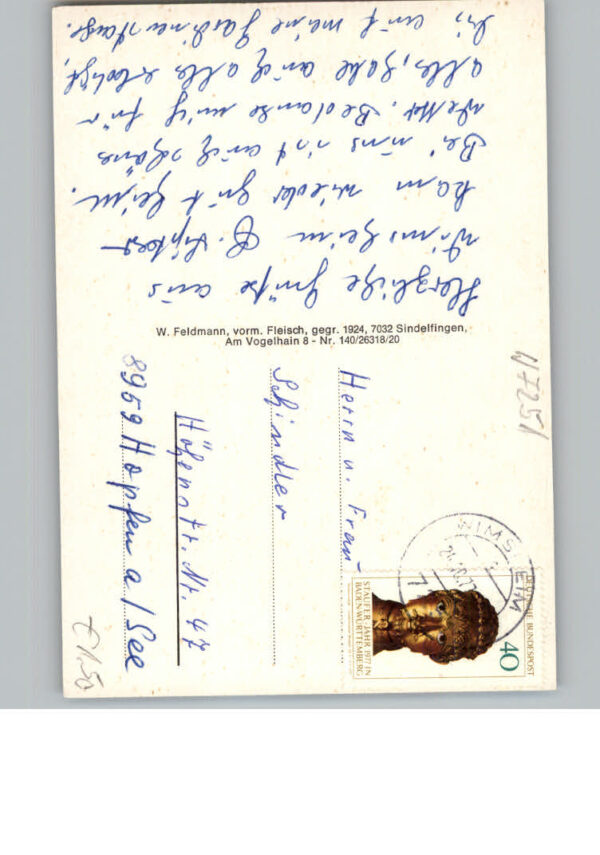 Herzliche Grüße aus
Wimsheim
kam wieder gut heim.
Bei uns ist auch schönes
Wetter. Bedanke mich für
alles, habe auch alles erledigt,
bis auf meine Gardinenstange.
W. Feldmann, vorm. Fleisch, gegr. 1924, 7032 Sindelfingen,
Am Vogelhain 8 - Nr. 140/26318/20
W7251
DEUTSCHE BUNDESPOST
40
STAUFER-JAHR 1977 IN
BADEN-WÜRTTEMBERG
WIMSHEIM
1
Herrn u. Frau
Schindler
Höhenstr. Nr. 47
8959 Hopfen a/See
€ 1.50